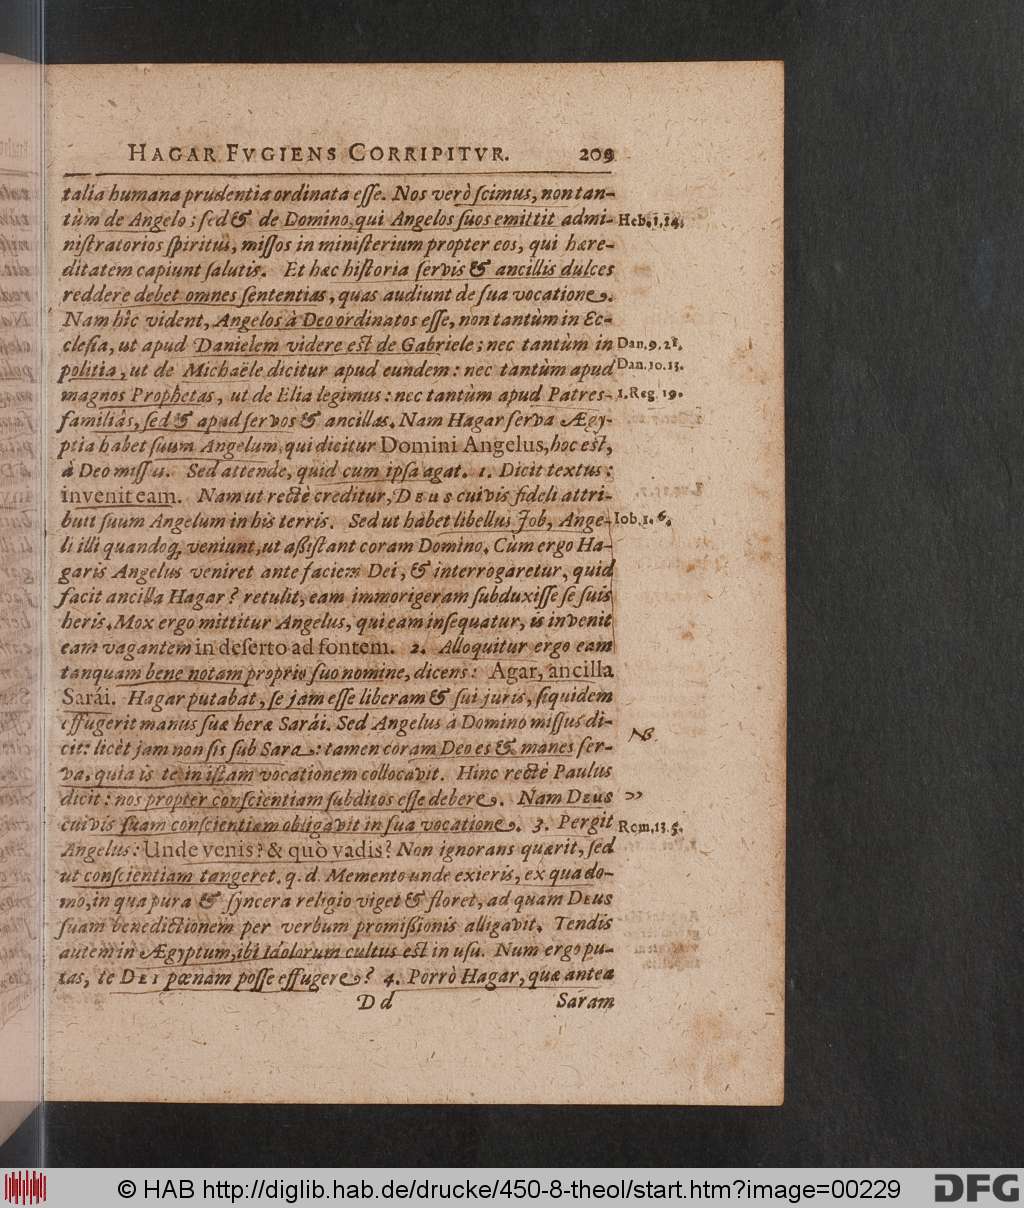 HAGAR FVGIENS CORRIPITVR. 209
talia humana prudentia ordinata eſſe. Nos verò ſcimus, non tan-
tùm de Angelo; ſed & de Domino, qui Angelos ſuos emittit admi- Heb. 1, 14.
niſtratorios ſpiritus, miſſos in miniſterium propter eos, qui hære-
ditatem capiunt ſalutis. Et hæc hiſtoria ſervis & ancillis dulces
reddere debet omnes ſententias, quas audiunt de ſua vocatione.
Nam hîc vident, Angelos à Deo ordinatos eſſe, non tantùm in Ec-
cleſia, ut apud Danielem videre eſt de Gabriele; nec tantùm in Dan. 9. 21.
politia, ut de Michaële dicitur apud eundem: nec tantùm apud Dan. 10. 13.
magnos Prophetas, ut de Elia legimus: nec tantùm apud Patres- 1. Reg. 19.
familiâs, ſed & apud ſervos & ancillas. Nam Hagar ſerva Ægy-
ptia habet ſuum Angelum, qui dicitur Domini Angelus, hoc eſt,
à Deo miſſus. Sed attende, quid cum ipſa agat. 1. Dicit textus:
invenit eam. Nam ut rectè creditur, DEUS cuivis fideli attri-
buit ſuum Angelum in his terris. Sed ut habet libellus Job, Ange- Iob. 1. 6.
li illi quandoq; veniunt, ut aßiſtant coram Domino. Cùm ergo Ha-
garis Angelus veniret ante faciem Dei, & interrogaretur, quid
facit ancilla Hagar? retulit, eam immorigeram ſubduxiſſe ſe ſuis
heris. Mox ergo mittitur Angelus, qui eam inſequatur, is invenit
eam vagantem in deſerto ad fontem. 2. Alloquitur ergo eam
tanquam bene notam proprio ſuo nomine, dicens: Agar, ancilla
Sarái. Hagar putabat, ſe jam eſſe liberam & ſui juris, ſiquidem
effugerit manus ſuæ heræ Sarái. Sed Angelus à Domino miſſus di-
cit: licèt jam non ſis ſub Sara: tamen coram Deo es & manes ſer- NB.
va, quia is te in iſtam vocationem collocavit. Hinc rectè Paulus
dicit: nos propter conſcientiam ſubditos eſſe debere. Nam DEUS ”
cuivis ſuam conſcientiam obligavit in ſua vocatione. 3. Pergit Rom. 13. 5.
Angelus: Unde venis? & quò vadis? Non ignorans quærit, ſed
ut conſcientiam tangeret. q. d. Memento unde exieris, ex qua do-
mo, in qua pura & ſyncera religio viget & floret, ad quam DEUS
ſuam benedictionem per verbum promißionis alligavit. Tendis
autem in Ægyptum, ibi Idolorum cultus eſt in uſu. Num ergo pu-
tas, te DEI pœnam poſſe effugere? 4. Porrò Hagar, quæ antea
D d Saram
© HAB http://diglib.hab.de/drucke/450-8-theol/start.htm?image=00229
DFG